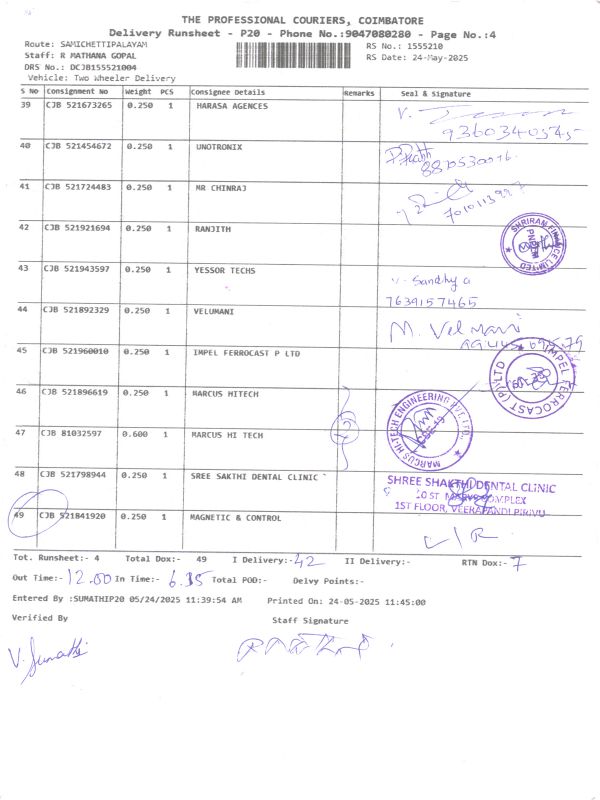 THE PROFESSIONAL COURIERS, COIMBATORE
Delivery Runsheet - P20 - Phone No.:9047080280 - Page No.:4
Route: SAMICHETTIPALAYAM RS No.: 1555210
Staff: R MATHANA GOPAL RS Date: 24-May-2025
DRS No.: DCJB155521004
Vehicle: Two Wheeler Delivery
S No Consignment No Weight PCS Consignee Details Remarks Seal & Signature
39 CJB 521673265 0.250 1 HARASA AGENCES V.
9360340545
40 CJB 521454672 0.250 1 UNOTRONIX
41 CJB 521724483 0.250 1 MR CHINRAJ
42 CJB 521921694 0.250 1 RANJITH SHRIRAM FINANCE LIMITED
43 CJB 521943597 0.250 1 YESSOR TECHS Sandhya
7639157465
44 CJB 521892329 0.250 1 VELUMANI M. Velmani
45 CJB 521960010 0.250 1 IMPEL FERROCAST P LTD IMPEL FERROCAST (P) LTD
46 CJB 521896619 0.250 1 MARCUS HITECH MARCUS HI-TECH ENGINEERING PVT. LTD.
CBE-19
47 CJB 81032597 0.600 1 MARCUS HI TECH
48 CJB 521798944 0.250 1 SREE SAKTHI DENTAL CLINIC SHREE SHAKTHI DENTAL CLINIC
COMPLEX
1ST FLOOR, VEERAPANDI PIRIVU
49 CJB 521841920 0.250 1 MAGNETIC & CONTROL
Tot. Runsheet:- 4 Total Dox:- 49 I Delivery:- 42 II Delivery:- RTN Dox:- 7
Out Time:- 12.00 In Time:- 6.35 Total POD:- Delvy Points:-
Entered By :SUMATHIP20 05/24/2025 11:39:54 AM Printed On: 24-05-2025 11:45:00
Verified By Staff Signature
V. Sumathi